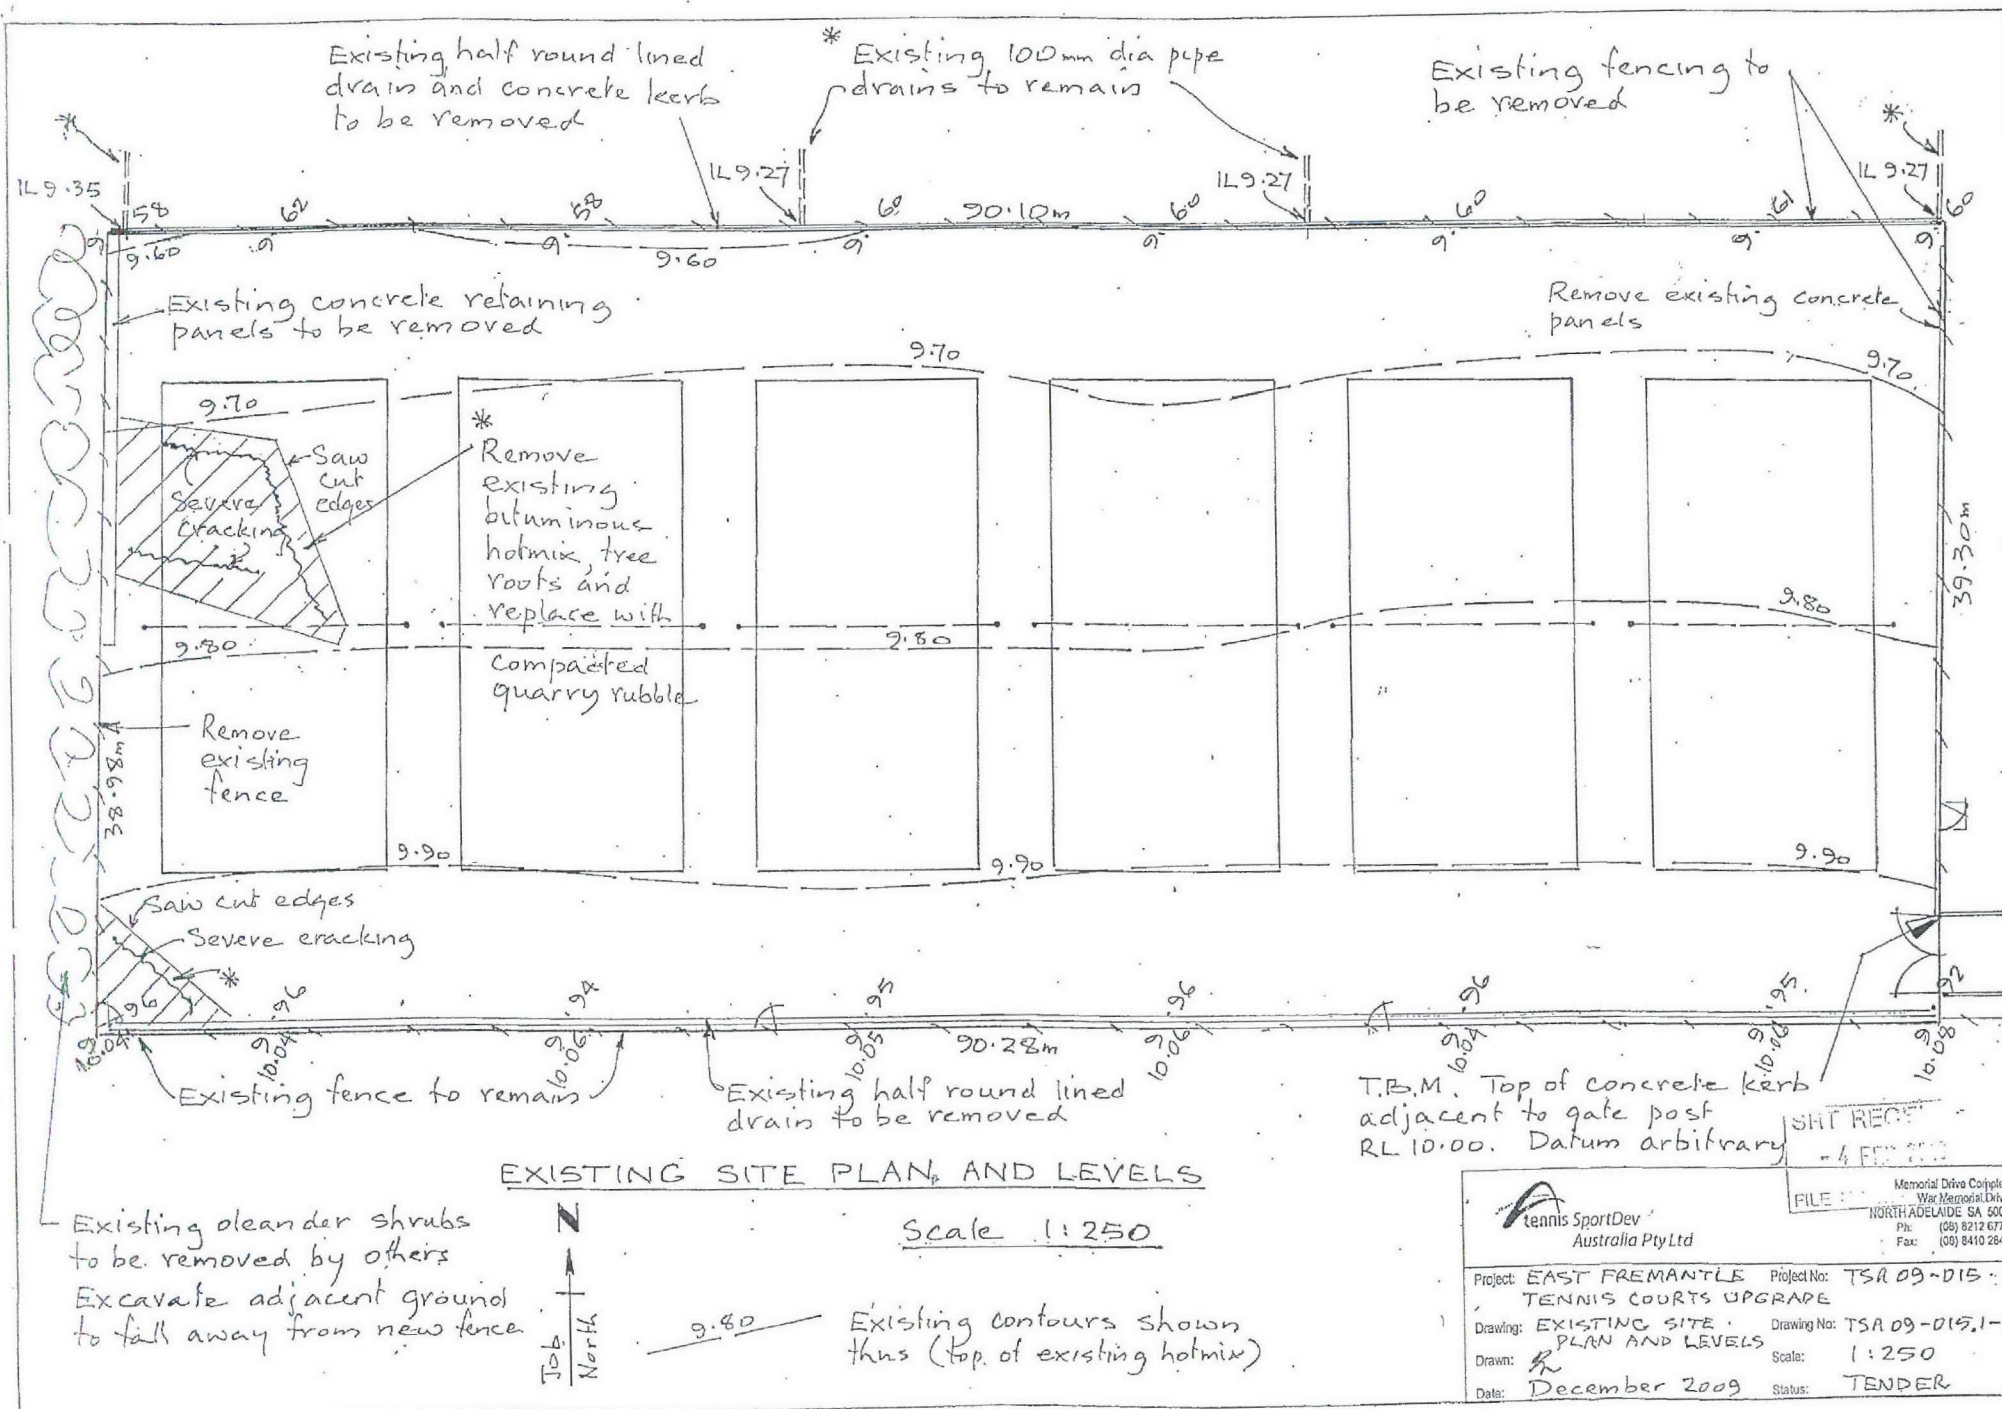 Existing half round lined
drain and concrete kerb
to be removed
* Existing 100mm dia pipe
drains to remain
Existing fencing to
be removed
*
*
IL 9.35
IL 9.27
IL 9.27
IL 9.27
9.58
9.62
9.58
9.60
90.10m
9.60
9.60
9.61
9.60
9.60
9.60
Existing concrete retaining
panels to be removed
Remove existing concrete
panels
9.70
9.70
9.70
Saw
cut
edges
Severe
cracking
*
Remove
existing
bituminous
hotmix, tree
roots and
replace with
compacted
quarry rubble
39.30m
9.80
9.80
9.80
Remove
existing
fence
38.98m
9.90
9.90
9.90
Saw cut edges
Severe cracking
*
9.96
9.96
9.94
9.95
9.96
9.96
9.95
9.92
10.04
10.04
10.06
10.05
90.28m
10.06
10.04
10.06
10.08
Existing fence to remain
Existing half round lined
drain to be removed
T.B.M. Top of concrete kerb
adjacent to gate post
RL 10.00. Datum arbitrary
EXISTING SITE PLAN AND LEVELS
Scale 1:250
Existing oleander shrubs
to be removed by others
Excavate adjacent ground
to fall away from new fence
N
Job
North
9.80
Existing contours shown
thus (top of existing hotmix)
FILE
tennis SportDev
Australia Pty Ltd
Memorial Drive Comple
War Memorial Driv
NORTH ADELAIDE SA 500
Ph: (08) 8212 677
Fax: (08) 8410 284
Project: EAST FREMANTLE
TENNIS COURTS UPGRADE
Project No: TSA 09-015
Drawing: EXISTING SITE
PLAN AND LEVELS
Drawing No: TSA 09-015.1-
Drawn:
Scale: 1:250
Date: December 2009
Status: TENDER